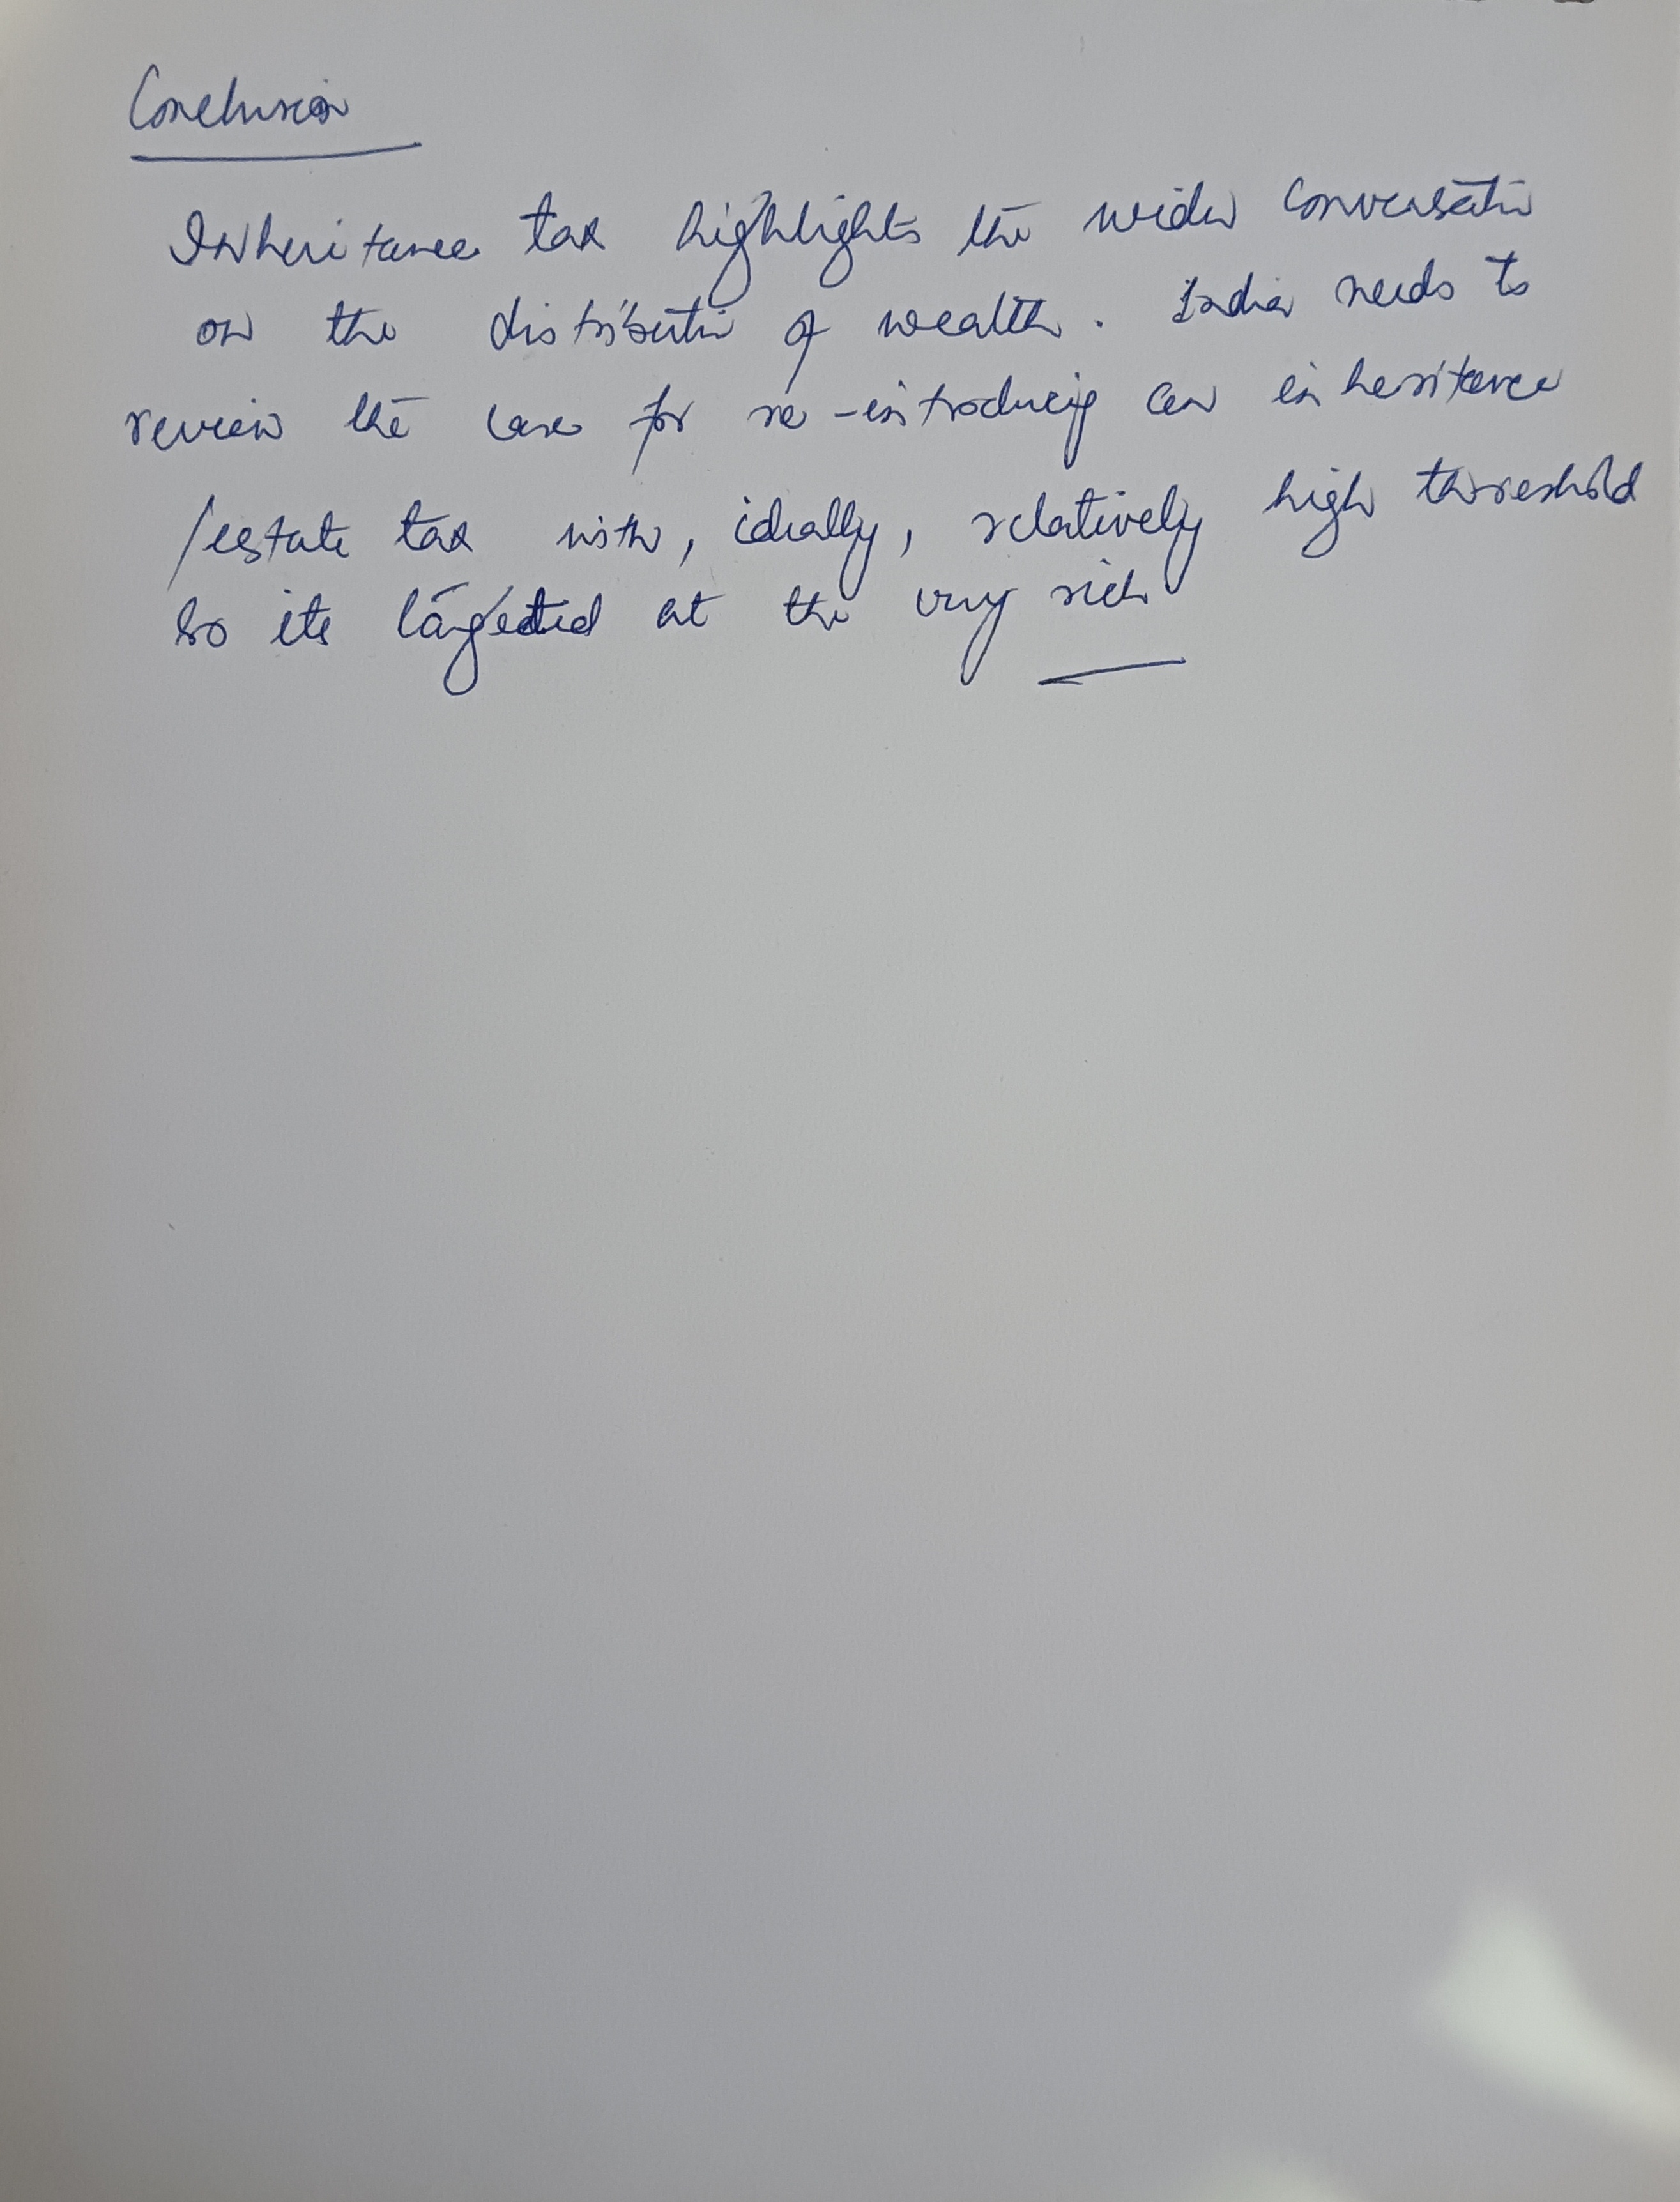 Conclusion
Inheritance tax highlights the wider conversation
on the distribution of wealth. India needs to
review the case for re-introducing an inheritance
/estate tax with, ideally, relatively high threshold
so its targeted at the very rich